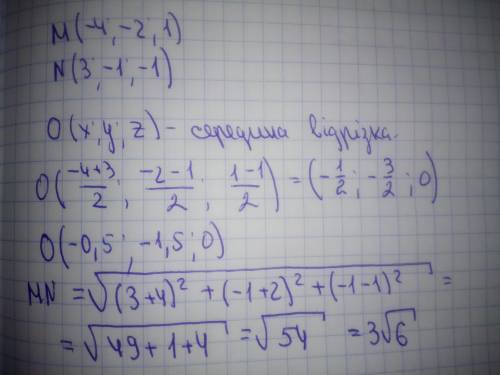 M(-4; -2; 1)
N(3; -1; -1)
O(x; y; z) - середина відрізка.
O((-4+3)/2; (-2-1)/2; (1-1)/2) = (-1/2; -3/2; 0)
O(-0,5; -1,5; 0)
MN = √((3+4)² + (-1+2)² + (-1-1)²) =
= √(49+1+4) = √54 = 3√6